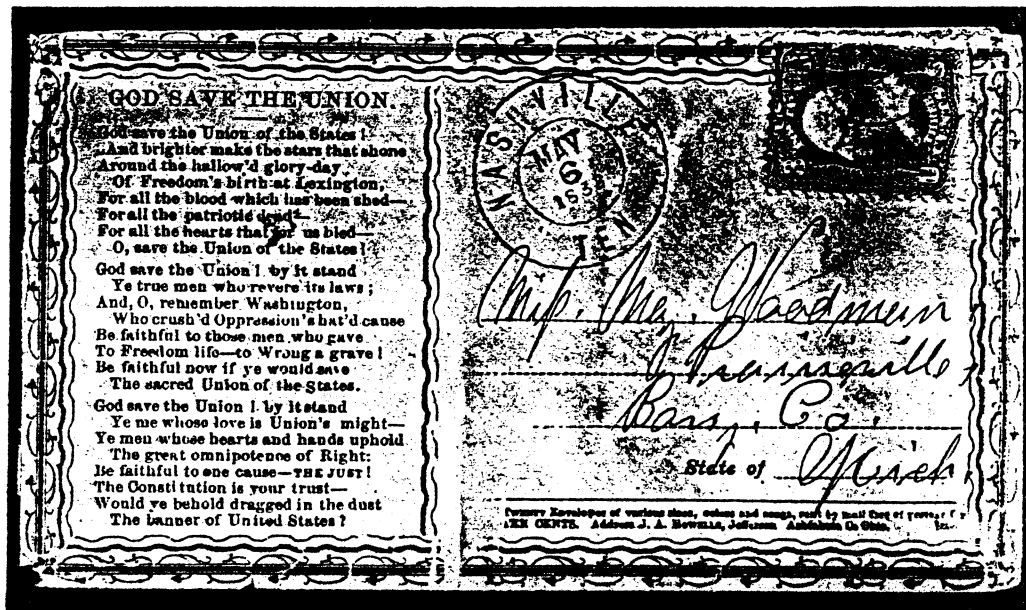 GOD SAVE THE UNION.
God save the Union of the States!
And brighter make the stars that shone
Around the hallow'd glory-day
Of Freedom's birth at Lexington,
For all the blood which has been shed—
For all the patriotic dead—
For all the hearts that for us bled—
O, save the Union of the States!
God save the Union! by it stand
Ye true men who revere its laws;
And, O, remember Washington,
Who crush'd Oppression's hat'd cause
Be faithful to those men who gave
To Freedom life—to Wrong a grave!
Be faithful now if ye would save
The sacred Union of the States.
God save the Union! by it stand
Ye me whose love is Union's might—
Ye men whose hearts and hands uphold
The great omnipotence of Right:
Be faithful to one cause—THE JUST!
The Constitution is your trust—
Would ye behold dragged in the dust
The banner of United States?
NASHVILLE
MAY
6
TEN
Miss. Woodman
Co.
State of Mich
Envelopes of various sizes, colors and songs, sent by mail free of
TEN CENTS. Address J. A. Howells, Jefferson Ashtabula Co Ohio.